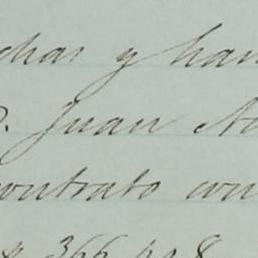 chas y han
D. Juan
contrato con
366